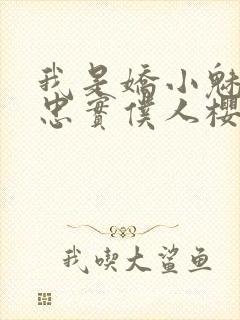 我是嬌小魅
忠實僕人櫻
我喫大鯊鱼